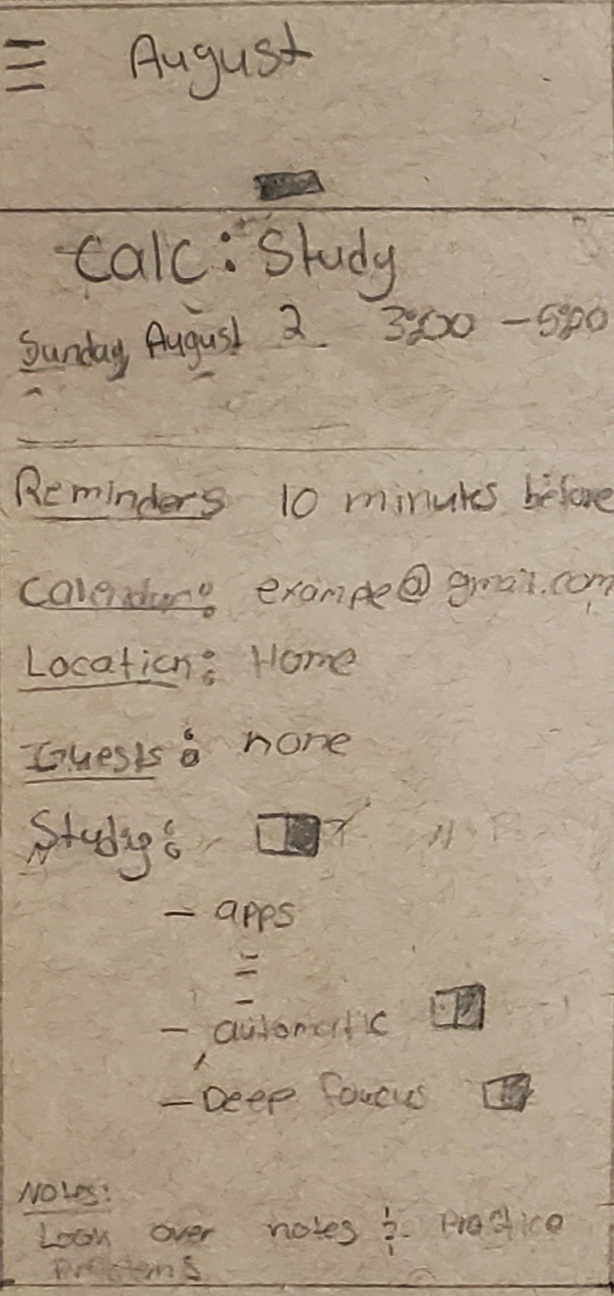 August
Calc: Study
Sunday, August 2 3:00 - 5:00
Reminders 10 minutes before
Calendar: exampe@gmail.com
Location: Home
Guests: none
Study:
- apps
- automatic
- Deep foucus
Notes:
Look over notes & Practice
problems